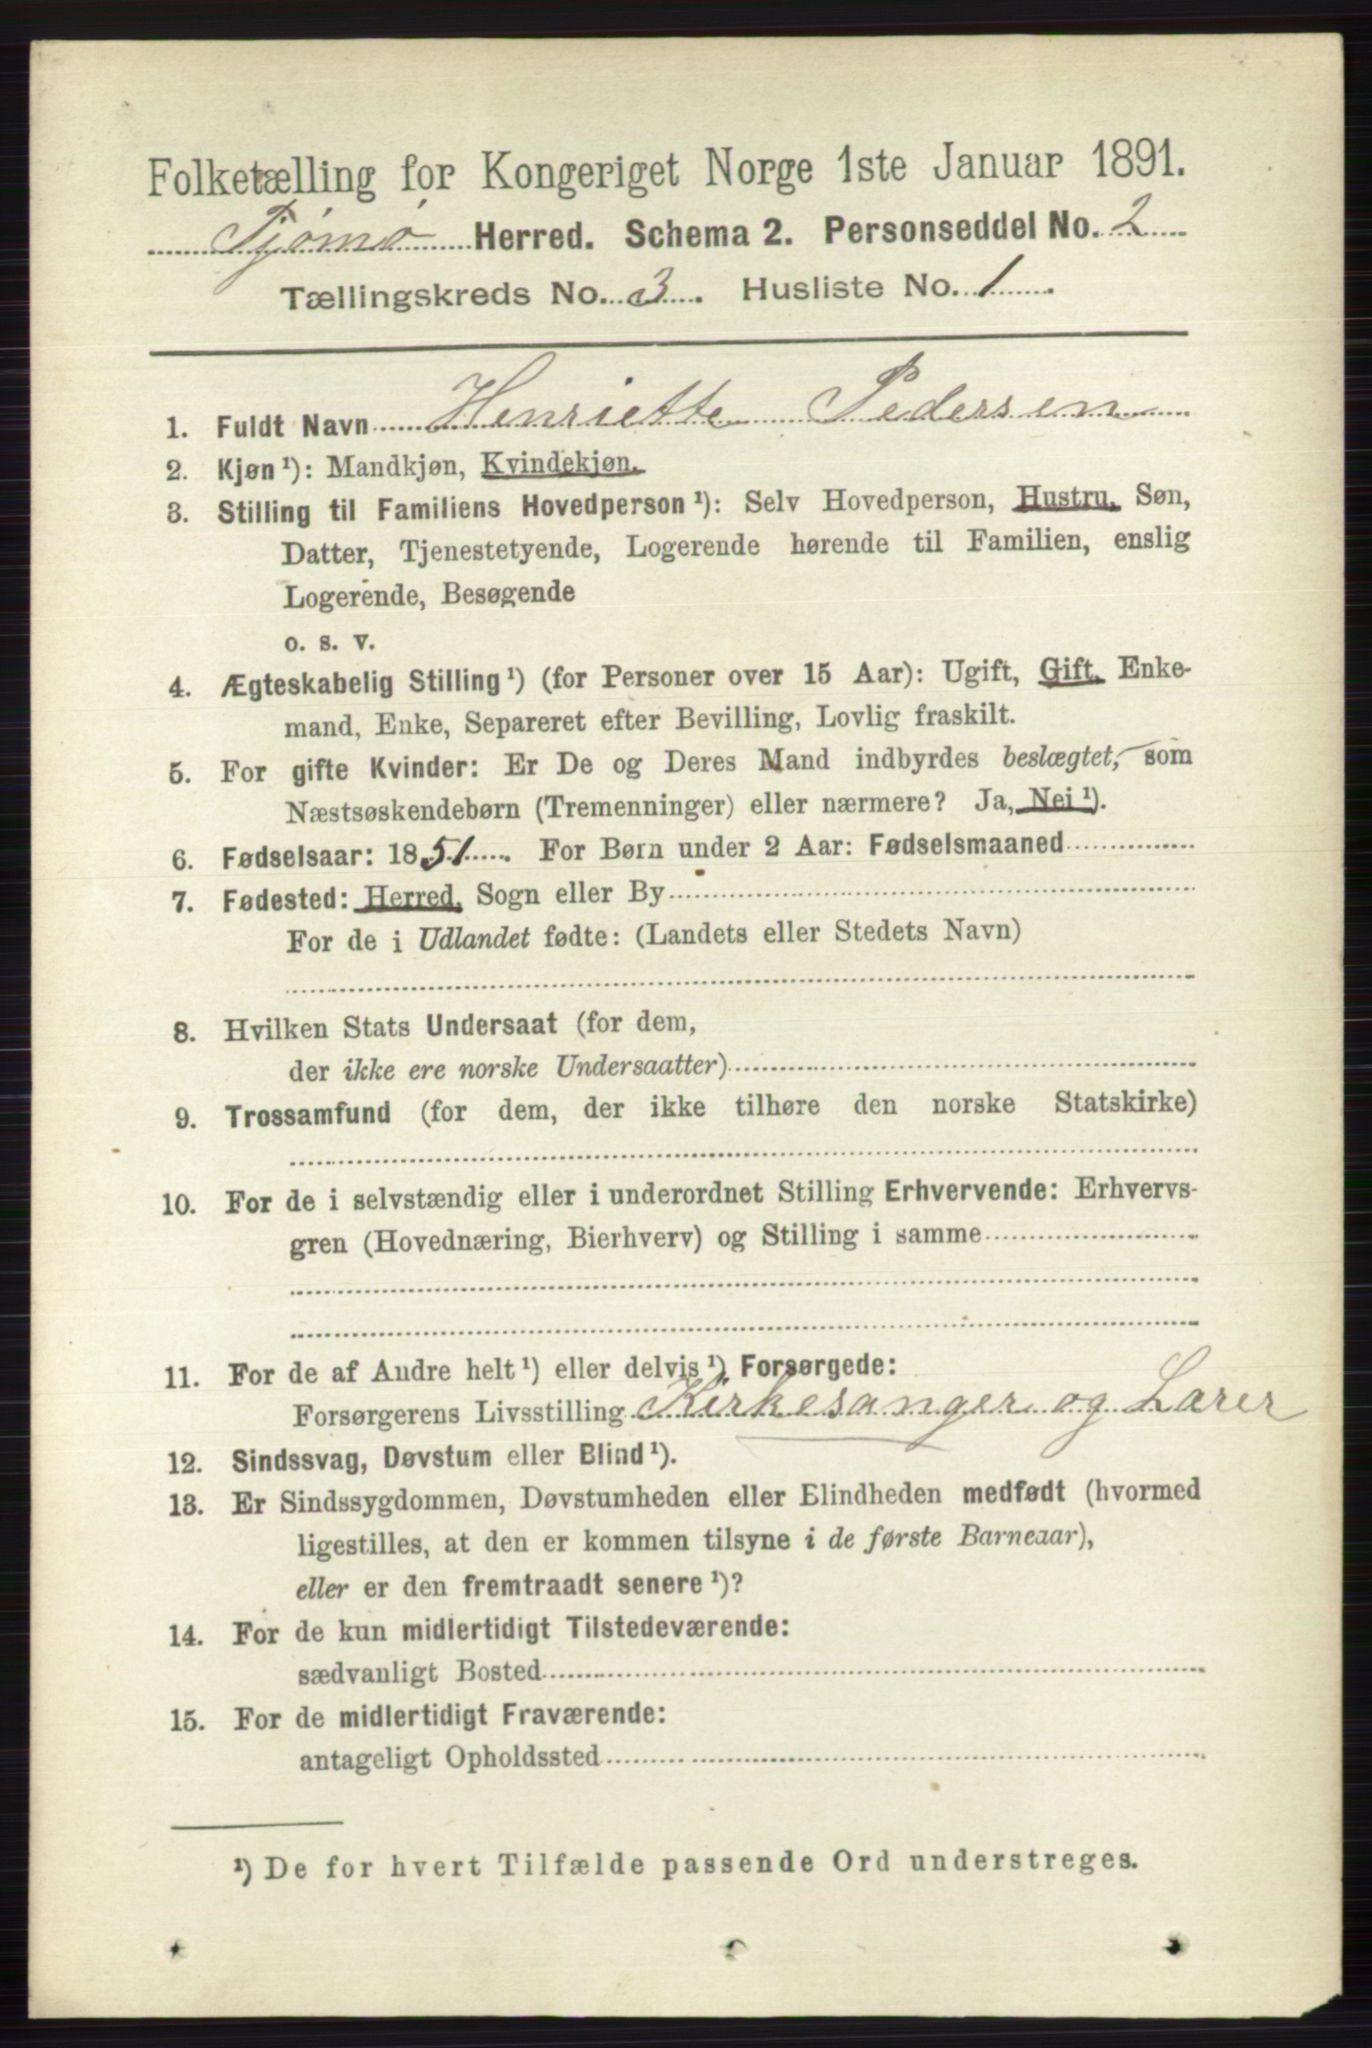 Folketælling for Kongeriget Norge 1ste Januar 1891.
Tjømø Herred. Schema 2. Personseddel No. 2
Tællingskreds No. 3. Husliste No. 1
1. Fuldt Navn Henriette Pedersen
2. Kjøn¹): Mandkjøn, Kvindekjøn.
3. Stilling til Familiens Hovedperson¹): Selv Hovedperson, Hustru, Søn,
Datter, Tjenestetyende, Logerende hørende til Familien, enslig
Logerende, Besøgende
o. s. v.
4. Ægteskabelig Stilling¹) (for Personer over 15 Aar): Ugift, Gift, Enke-
mand, Enke, Separeret efter Bevilling, Lovlig fraskilt.
5. For gifte Kvinder: Er De og Deres Mand indbyrdes beslægtet, som
Næstsøskendebørn (Tremenninger) eller nærmere? Ja, Nei¹).
6. Fødselsaar: 1851. For Børn under 2 Aar: Fødselsmaaned
7. Fødested: Herred, Sogn eller By
For de i Udlandet fødte: (Landets eller Stedets Navn)
8. Hvilken Stats Undersaat (for dem,
der ikke ere norske Undersaatter)
9. Trossamfund (for dem, der ikke tilhøre den norske Statskirke)
10. For de i selvstændig eller i underordnet Stilling Erhvervende: Erhvervs-
gren (Hovednæring, Bierhverv) og Stilling i samme
11. For de af Andre helt¹) eller delvis¹) Forsørgede:
Forsørgerens Livsstilling Kirkesanger og Larer
12. Sindssvag, Døvstum eller Blind¹).
13. Er Sindssygdommen, Døvstumheden eller Blindheden medfødt (hvormed
ligestilles, at den er kommen tilsyne i de første Barneaar),
eller er den fremtraadt senere¹)?
14. For de kun midlertidigt Tilstedeværende:
sædvanligt Bosted
15. For de midlertidigt Fraværende:
antageligt Opholdssted
¹) De for hvert Tilfælde passende Ord understreges.